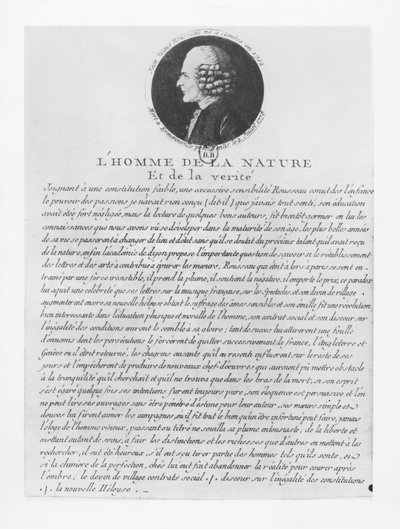 Jean Jaques Rousseau né à Genève en 1712
Mort à Ermenonville près Paris le 2 Juillet 1778
B.R
L'HOMME DE LA NATURE
Et de la verité
Joignant à une constitution faible, une excessive sensibilité Rousseau conut dès l'enfance
le pouvoir des passions je n'avait rien conçu (dit-il) que javais tout senti, son éducation
avait été fort négligée, mais la lecture de quelques bons auteurs, fit bientôt germer en lui les
connaissances que nous avons vû se déveloper dans la maturité de son âge, les plus belles années
de sa vie se passerent à changer de lieu et d'etat sans qu'il se doutat du precieux talent qu'il avait reçu
de la nature, enfin l'academie de dijon propose l'importante question de savoir si le rétablissement
des lettres et des arts à contribué à épurer les mœurs, Rousseau qui était alors à paris se sent en-
trainé par une force irresistible, il prend la plume, il soutient la negative, il emporte le prix, ce parado[xe]
lui aquit une celebrité que ses lettres sur la musique française, sur les spectacles et son devin de village
augmenterent encore sa nouvelle héloïse obtint le suffrage des ames sensibles et son émille fit une révolution
bien interessante dans l'éducation phisique et moralle de l'homme, son contrat social et son discour sur
l'inégalité des conditions mirent le comble à sa gloire; tant de succes lui attirerent une foulle
d'ennemis dont les persécutions le forcerent de quitter successivement la france, l'Angleterre et
Genève ou il était retourné, les chagrins cuisants qu'il en resenti influerent sur le reste de ses
jours et l'empêcherent de produire de nouveaux chef-d'œuvres qui auroient pû mettre obstacle
à la tranquilité qu'il cherchait et qu'il ne trouva que dans les bras de la mort, si son esprit
s'est égaré quelque fois ses intentions furent toujours pure, son éloquence est persuasive et l'on
ne peut lire ses ouvrages sans être pénétré d'estime pour leur auteur, ses mœurs simples et
douces lui firent aimer les campagnes, où il fit tout le bien qu'un être infortuné peut faire, jamais
l'éloge de l'homme vicieux, puissant ou titré ne souilla sa plume entousiaste, de la liberté et
mettant autant de soins, à fuir les distinctions et les richesses que d'autres en mettent à les
rechercher, il eut été heureux, s'il eut sçu tirer partie des hommes tels qu'ils sont, et
si la chimère de la perfection, chés lui eut fait abandonner la réalité pour courir après
l'ombre, le devin de village contrat social .J. discour sur l'inégalité des constitutions
.J. la nouvelle Héloyse . _